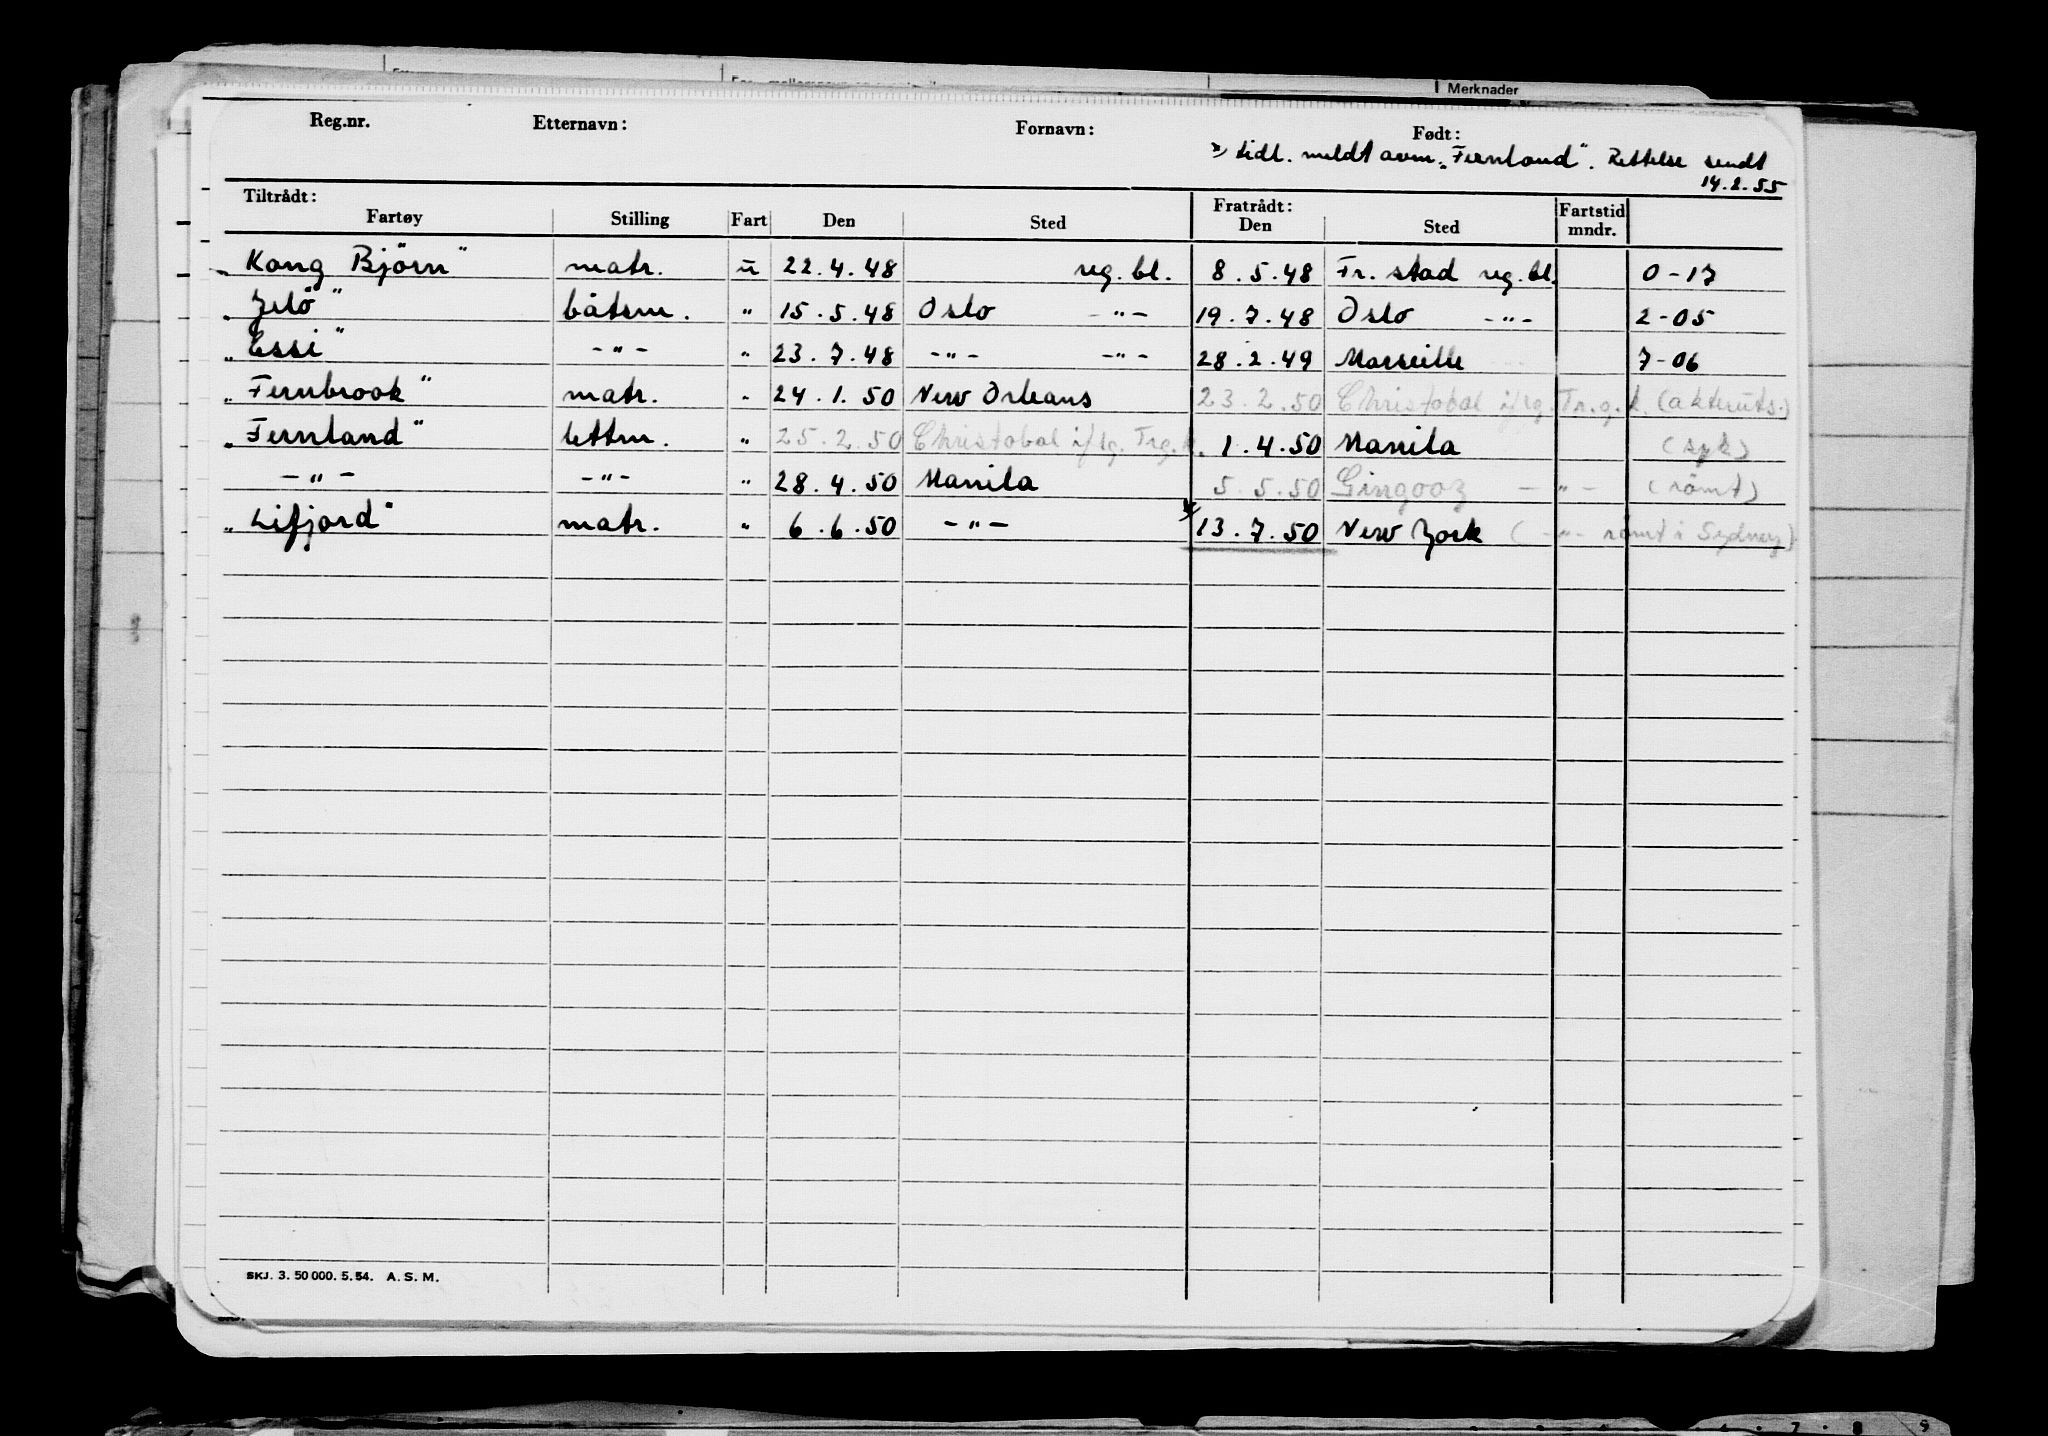 Merknader
Reg.nr. Etternavn: Fornavn: Født:
tidl. meldt avm. „Fernland". Rettelse sendt
14.2.55
Tiltrådt: Fratrådt:
Fartøy Stilling Fart Den Sted Den Sted Fartstid mndr.
„Kong Björn" matr. u 22.4.48 reg. bl. 8.5.48 Fr. stad reg. bl. 0-17
„Jelö" båtsm. " 15.5.48 Oslo -"- 19.7.48 Oslo -"- 2-05
„Essi" -"- " 23.7.48 -"- -"- 28.2.49 Marseille 7-06
„Fernbrook" matr. " 24.1.50 New Orleans 23.2.50 Christobal i/lg. Tr.g.k. (akteruts.)
„Fernland" lettm. " 25.2.50 Christobal i/lg. Trg.k. 1.4.50 Manila (syk)
-"- -"- " 28.4.50 Manila 5.5.50 Gingooz -"- (römt)
„Lifjord" matr. " 6.6.50 -"- 13.7.50 New York (-"- römt i Sydney)
SKJ. 3. 50 000. 5. 54. A. S. M.
7 8 9